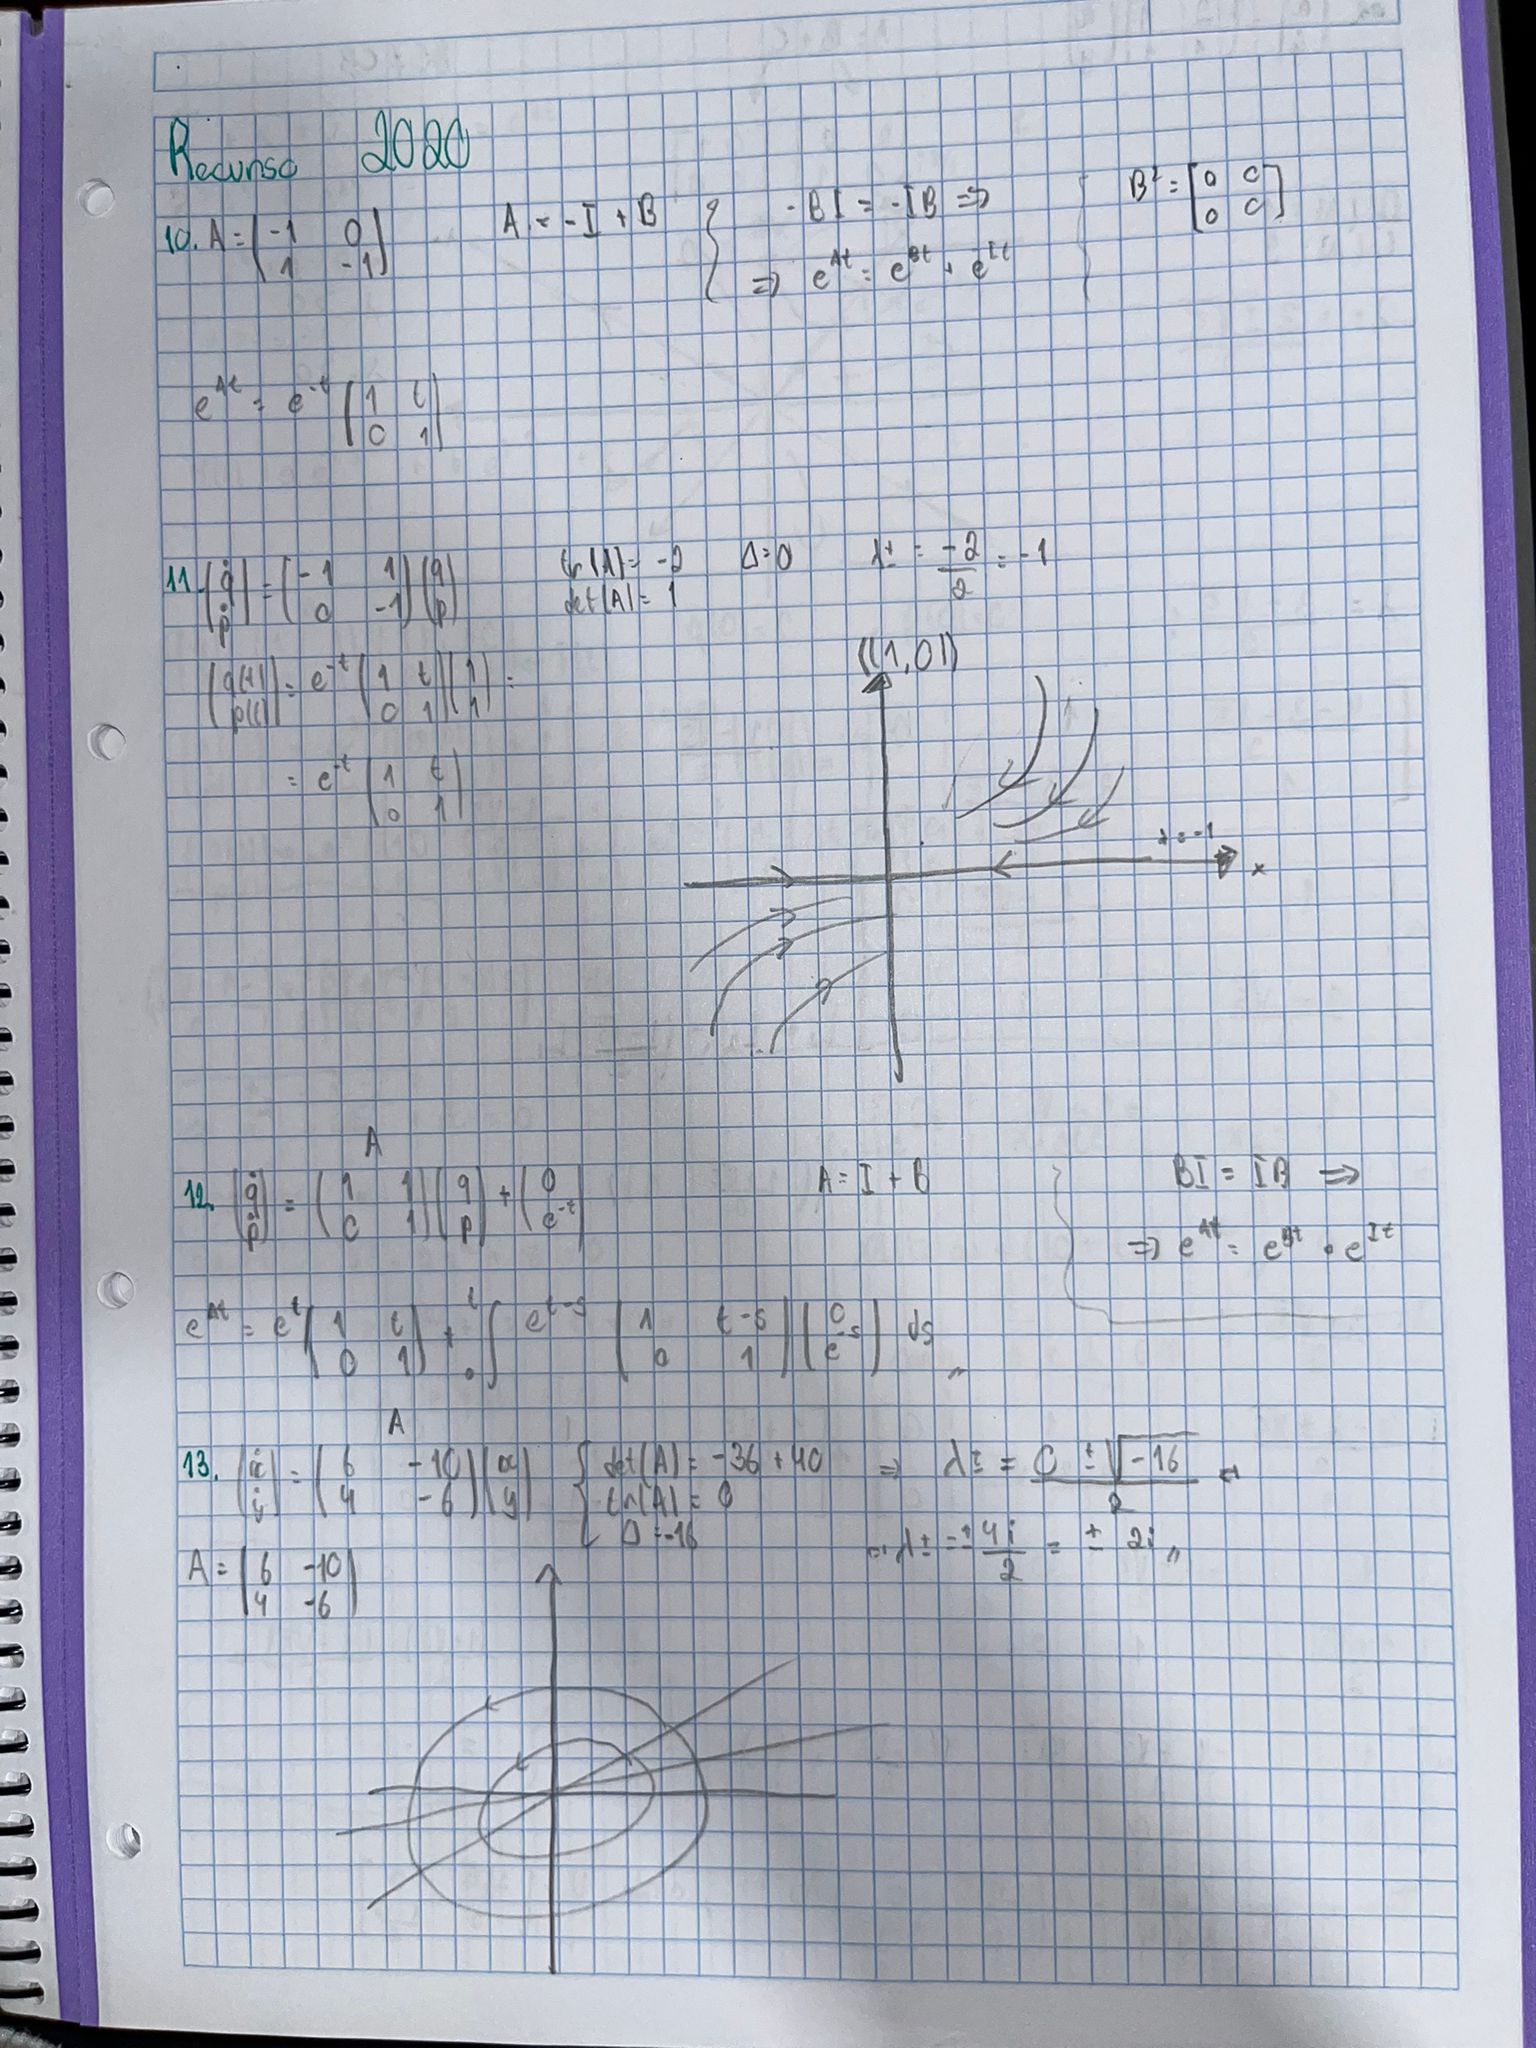 Recurso 2020
10. A = (-1 0
1 -1)
A = -I + B
-BI = -IB ⇒
⇒ e^At = e^Bt · e^It
B² = [0 0
0 0]
e^At = e^-t (1 t
0 1)
11. (q̇
ṗ) = (-1 1
0 -1)(q
p)
tr(A) = -2
det(A) = 1
Δ = 0
λ± = -2/2 = -1
(q(t)
p(t)) = e^-t (1 t
0 1)(1
1) =
= e^-t (1 t
0 1)
((1,0))
λ = -1
x
A
12. (q̇
ṗ) = (1 1
0 1)(q
p) + (0
e^-t)
A = I + B
BI = IB ⇒
⇒ e^At = e^Bt • e^It
e^At = e^t (1 t
0 1) + ₀∫^t e^t-s (1 t-s
0 1)(0
e^-s) ds,,
A
13. (ẋ
ẏ) = (6 -10
4 -6)(x
y)
det(A) = -36 + 40
tr(A) = 0
Δ = -16
⇒ λ± = (0 ± √-16)/2 ⇔
⇔ λ± = ± 4i/2 = ± 2i,,
A = (6 -10
4 -6)